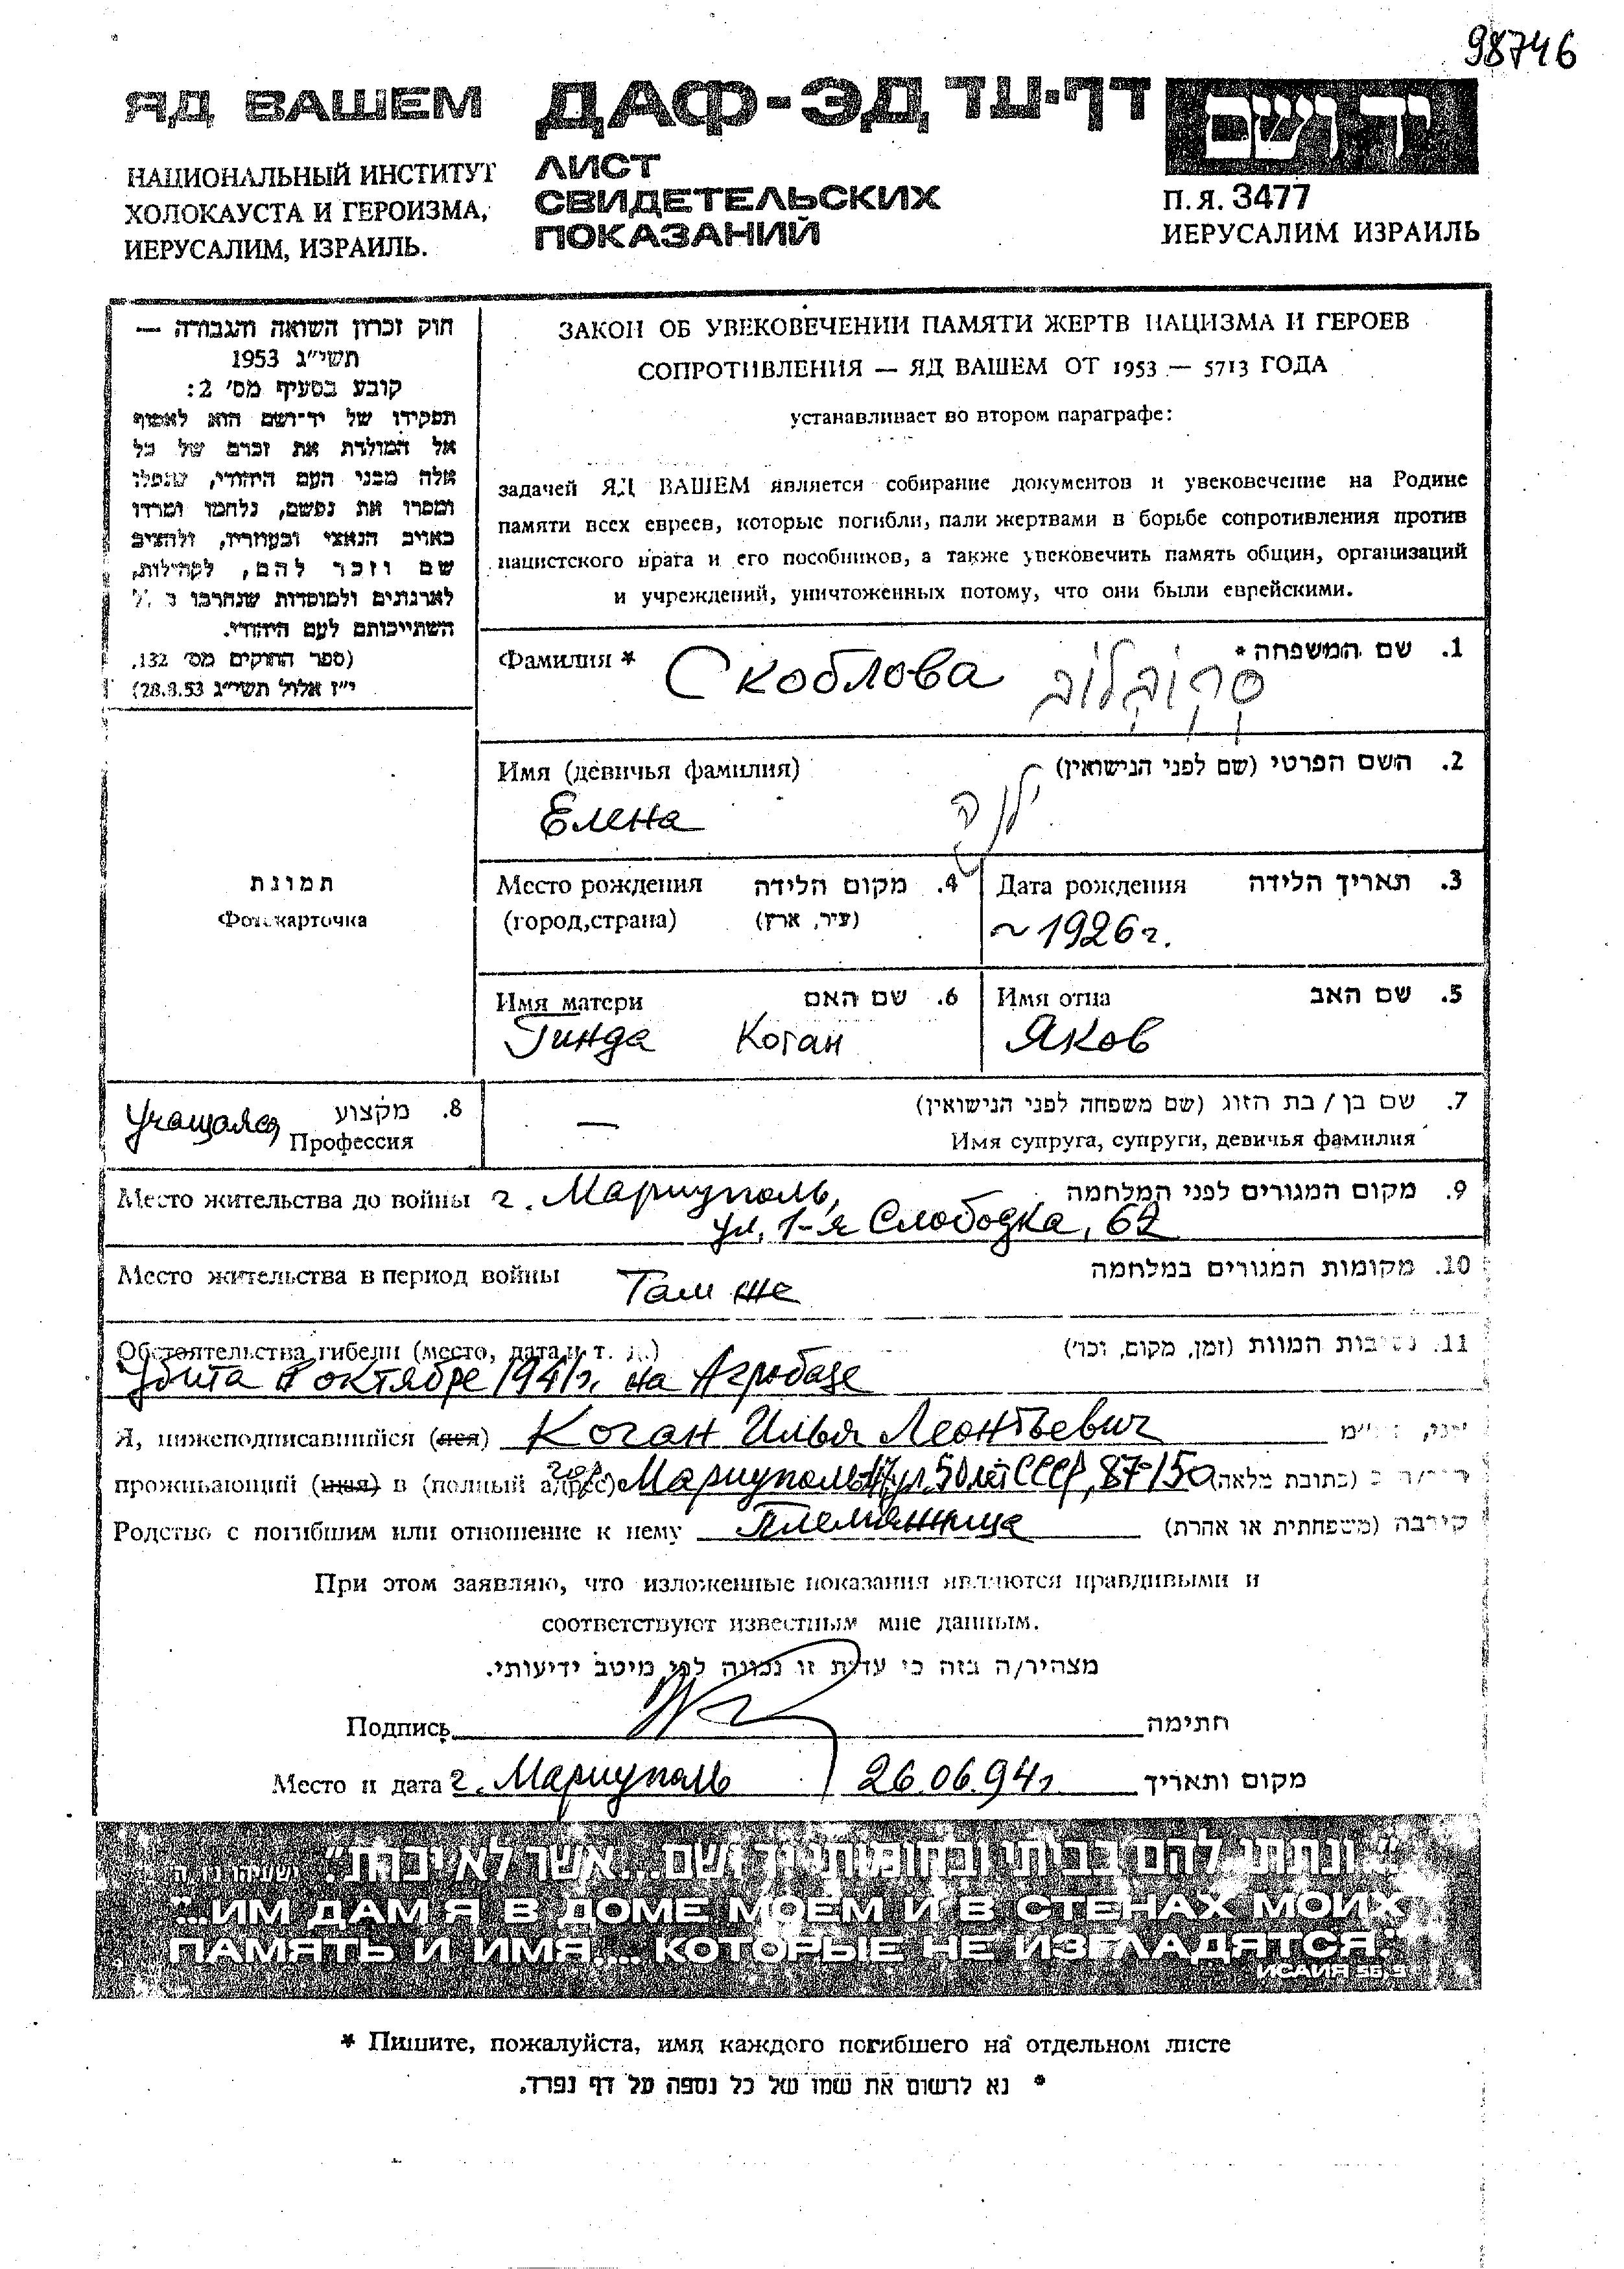 98746
ЯД ВАШЕМ ДАФ-ЭД דף-עד יד ושם
НАЦИОНАЛЬНЫЙ ИНСТИТУТ
ХОЛОКАУСТА И ГЕРОИЗМА,
ИЕРУСАЛИМ, ИЗРАИЛЬ.
ЛИСТ
СВИДЕТЕЛЬСКИХ
ПОКАЗАНИЙ
П.Я. 3477
ИЕРУСАЛИМ ИЗРАИЛЬ
חוק זכרון השואה והגבורה —
תשי״ג 1953
קובע בסעיף מס׳ 2:
תפקידו של יד־ושם הוא לאסוף
אל המולדת את זכרם של כל
אלה מבני העם היהודי, שנפלו
ומסרו את נפשם, נלחמו ומרדו
באויב הנאצי ובעוזריו, ולהציב
שם וזכר להם, לקהילות,
לארגונים ולמוסדות שנחרבו
השתייכותם לעם היהודי.
(ספר החוקים מס׳ 132,
י״ז אלול תשי״ג 28.8.53)
ЗАКОН ОБ УВЕКОВЕЧЕНИИ ПАМЯТИ ЖЕРТВ НАЦИЗМА И ГЕРОЕВ
СОПРОТИВЛЕНИЯ — ЯД ВАШЕМ ОТ 1953 — 5713 ГОДА
устанавливает во втором параграфе:
задачей ЯД ВАШЕМ является собирание документов и увековечение на Родине
памяти всех евреев, которые погибли, пали жертвами в борьбе сопротивления против
нацистского врага и его пособников, а также увековечить память общин, организаций
и учреждений, уничтоженных потому, что они были еврейскими.
Фамилия * Скоблова סקובלוב 1. שם המשפחה *
2. השם הפרטי (שם לפני הנישואין) Имя (девичья фамилия)
Елена ילנה
תמונת
Фотокарточка
Место рождения 4. מקום הלידה
(город,страна) (עיר, ארץ)
Дата рождения 3. תאריך הלידה
~1926г.
Имя матери 6. שם האם
Гинда Коган
Имя отца 5. שם האב
Яков
Учащаяся 8. מקצוע
Профессия
7. שם בן / בת הזוג (שם משפחה לפני הנישואין)
—
Имя супруга, супруги, девичья фамилия
Место жительства до войны г. Мариуполь, 9. מקום המגורים לפני המלחמה
ул. 1-я Слободка, 62
Место жительства в период войны Там же 10. מקומות המגורים במלחמה
Обстоятельства гибели (место, дата и т. д.) 11. נסיבות המוות (זמן, מקום, וכו׳)
Убита в октябре 1941г. на Агробазе
Я, нижеподписавшийся (аяся) Коган Илья Леонтьевич
проживающий (щая) в (полный адрес) Мариуполь ул. 50 лет СССР, 87-150 (כתובת מלאה)
Родство с погибшим или отношение к нему племянница קירבה (משפחתית או אחרת)
При этом заявляю, что изложенные показания являются правдивыми и
соответствуют известным мне данным.
מצהיר/ה בזה כי עדות זו נכונה לפי מיטב ידיעותי.
Подпись חתימה
Место и дата г. Мариуполь 26.06.94г. מקום ותאריך
״...ונתתי להם בביתי ובחומותי יד ושם...אשר לא יכרת״. ישעיהו נו, ה
"...ИМ ДАМ Я В ДОМЕ МОЕМ И В СТЕНАХ МОИХ
ПАМЯТЬ И ИМЯ,... КОТОРЫЕ НЕ ИЗГЛАДЯТСЯ."
ИСАИЯ 56,5
* Пишите, пожалуйста, имя каждого погибшего на отдельном листе
* נא לרשום את שמו של כל נספה על דף נפרד.